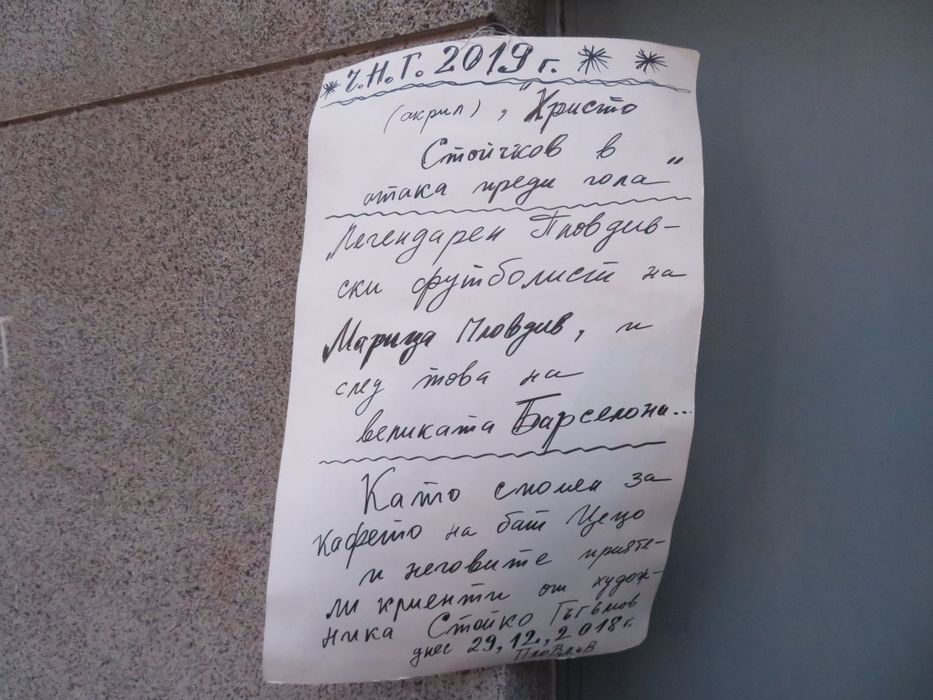 * Ч.Н.Г. 2019 г. * *
(акрил), "Христо
Стоичков в
атака преди гола"
Легендарен Пловдив-
ски футболист на
Марица Пловдив, и
след това на
великата Барселона...
Като спомен за
кафето на бат Цецо
и неговите прияте-
ли клиенти от худож-
ника Стойко Гъгъмов
днес 29,12.,2018г.
Пловдив